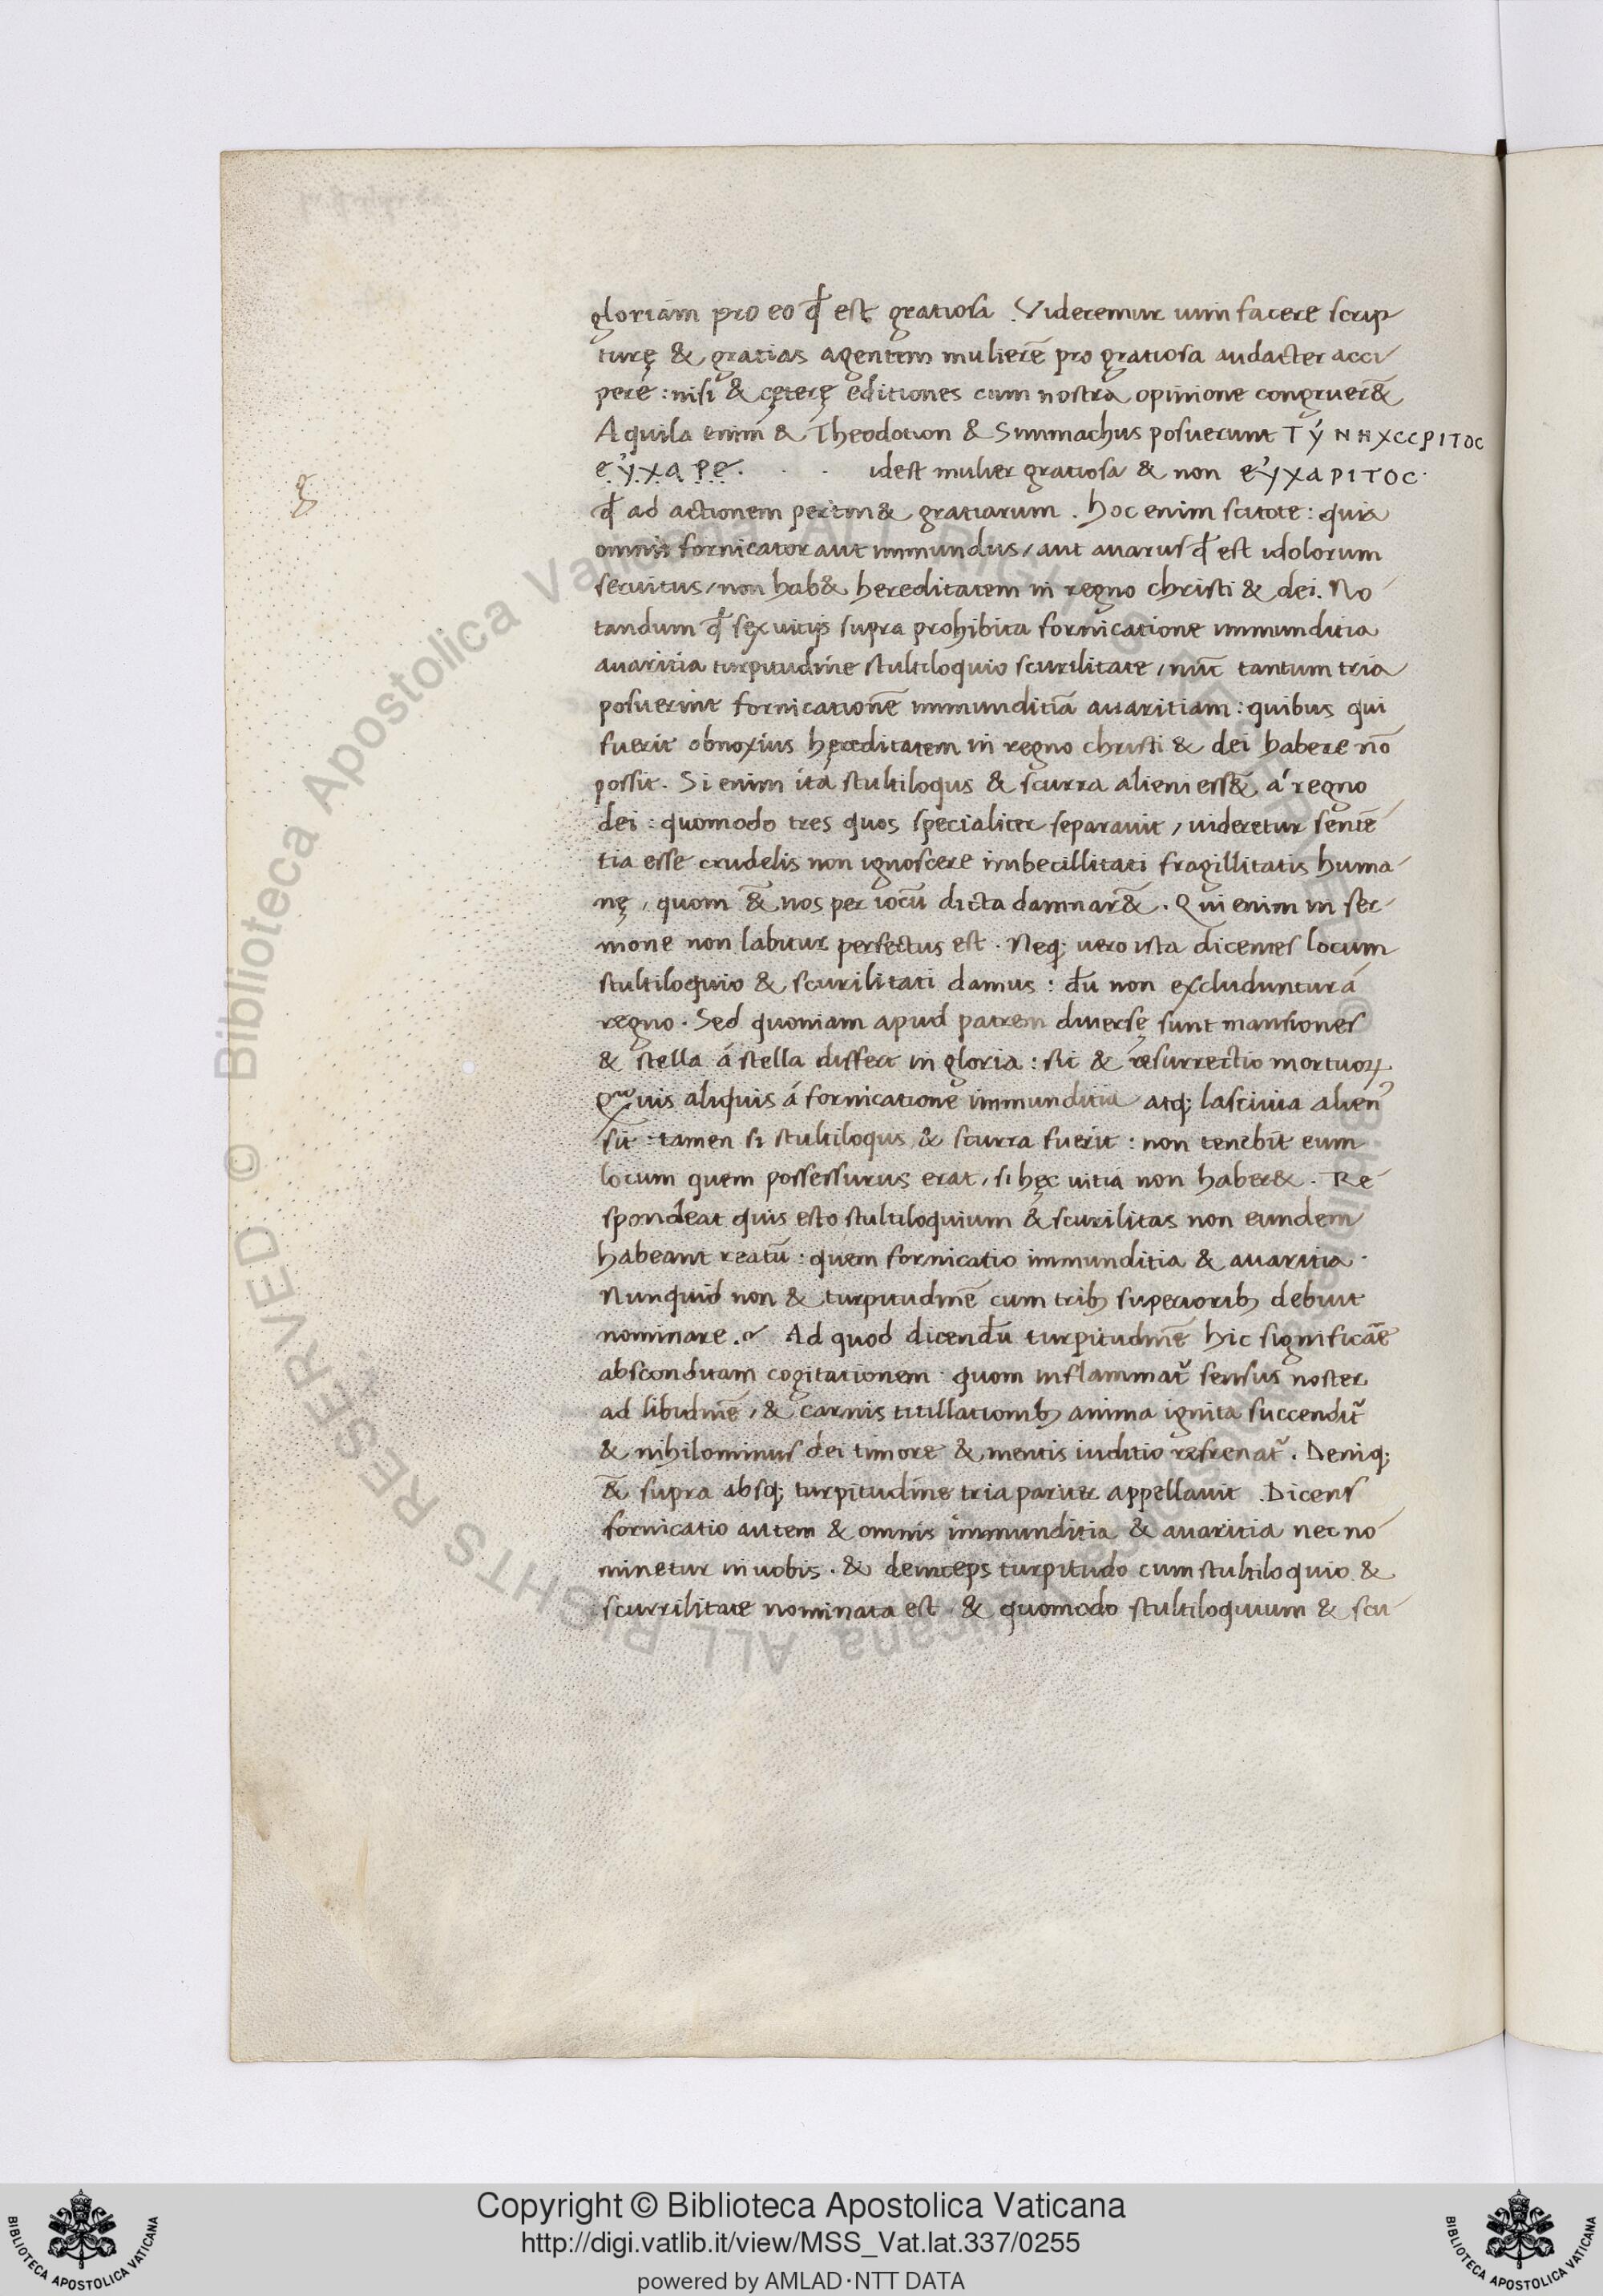 gloriam pro eo qđ est gratiosa. Videremur uim facere scrip
turę & gratias agentem mulierē pro gratiosa audacter acci
pere: nisi & cęterę editiones cum nostra opinione congruer&
Aquila enim & Theodotion & Simmachus posuerunt TÝNHXCCPITOC
eýxape. . . idest mulier gratiosa & non eýxapITOC.
qđ ad actionem pertin& gratiarum. hoc enim scitote: quia
omnis fornicator aut immundus, aut auarus qđ est idolorum
seruitus, non hab& hereditatem in regno christi & dei. No
tandum qđ sex uitijs supra prohibita fornicatione immunditia
auaritia turpitudine stultiloquio scurilitate, nūc tantum tria
posuerint fornicationē immunditiā auaritiam: quibus qui
fuerit obnoxius hęreditatem in regno christi & dei habere nō
possit. Si enim ita stultiloqus & scurra alieni ess& á regno
dei: quomodo tres quos specialiter separauit, uideretur sentē
tia esse crudelis non ignoscere imbecillitati fragillitatis huma-
nę, quom &̄ nos per iocū dicta damnar&. Qui enim in ser-
mone non labitur perfectus est. Neq; uero ista dicentes locum
stultiloquio & scurilitati damus: dū non excluduntur á
regno. Sed quoniam apud patrem diuersę sunt mansiones
& stella á stella differt in gloria: sic & resurrectio mortuoꝝ
Quis aliquis á fornicatione immunditia atq; lasciuia alien⁹
sit: tamen si stultiloqus & scurra fuerit: non tenebit eum
locum quem possessurus erat, si hęc uitia non haber&. Re-
spondeat quis esto stultiloquium & scurilitas non eundem
habeant reatū: quem fornicatio immunditia & auaritia.
Nunquid non & turpitudinē cum trib; superiorib; debuit
nominare.? Ad quod dicendū turpitudinē hic significāē
absconditam cogitationem quom inflammat᷑ sensus noster
ad libidinē, & carnis titillationib; anima ignita succendit᷑
& nihilominus dei timore & mentis iuditio refrenat᷑. Deniq;
&̄ supra absq; turpitudine tria pariter appellauit. Dicens
fornicatio autem & omnis immunditia & auaritia nec no-
minetur in uobis. & deinceps turpitudo cum stultiloquio &
scurrilitate nominata est & quomodo stultiloquium & scu-
Copyright © Biblioteca Apostolica Vaticana
http://digi.vatlib.it/view/MSS_Vat.lat.337/0255
powered by AMLAD·NTT DATA